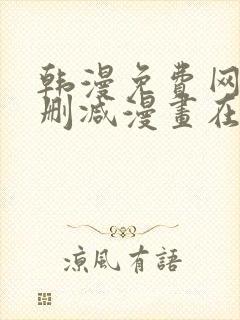 韩漫免费网
删减漫畫在
涼風有語